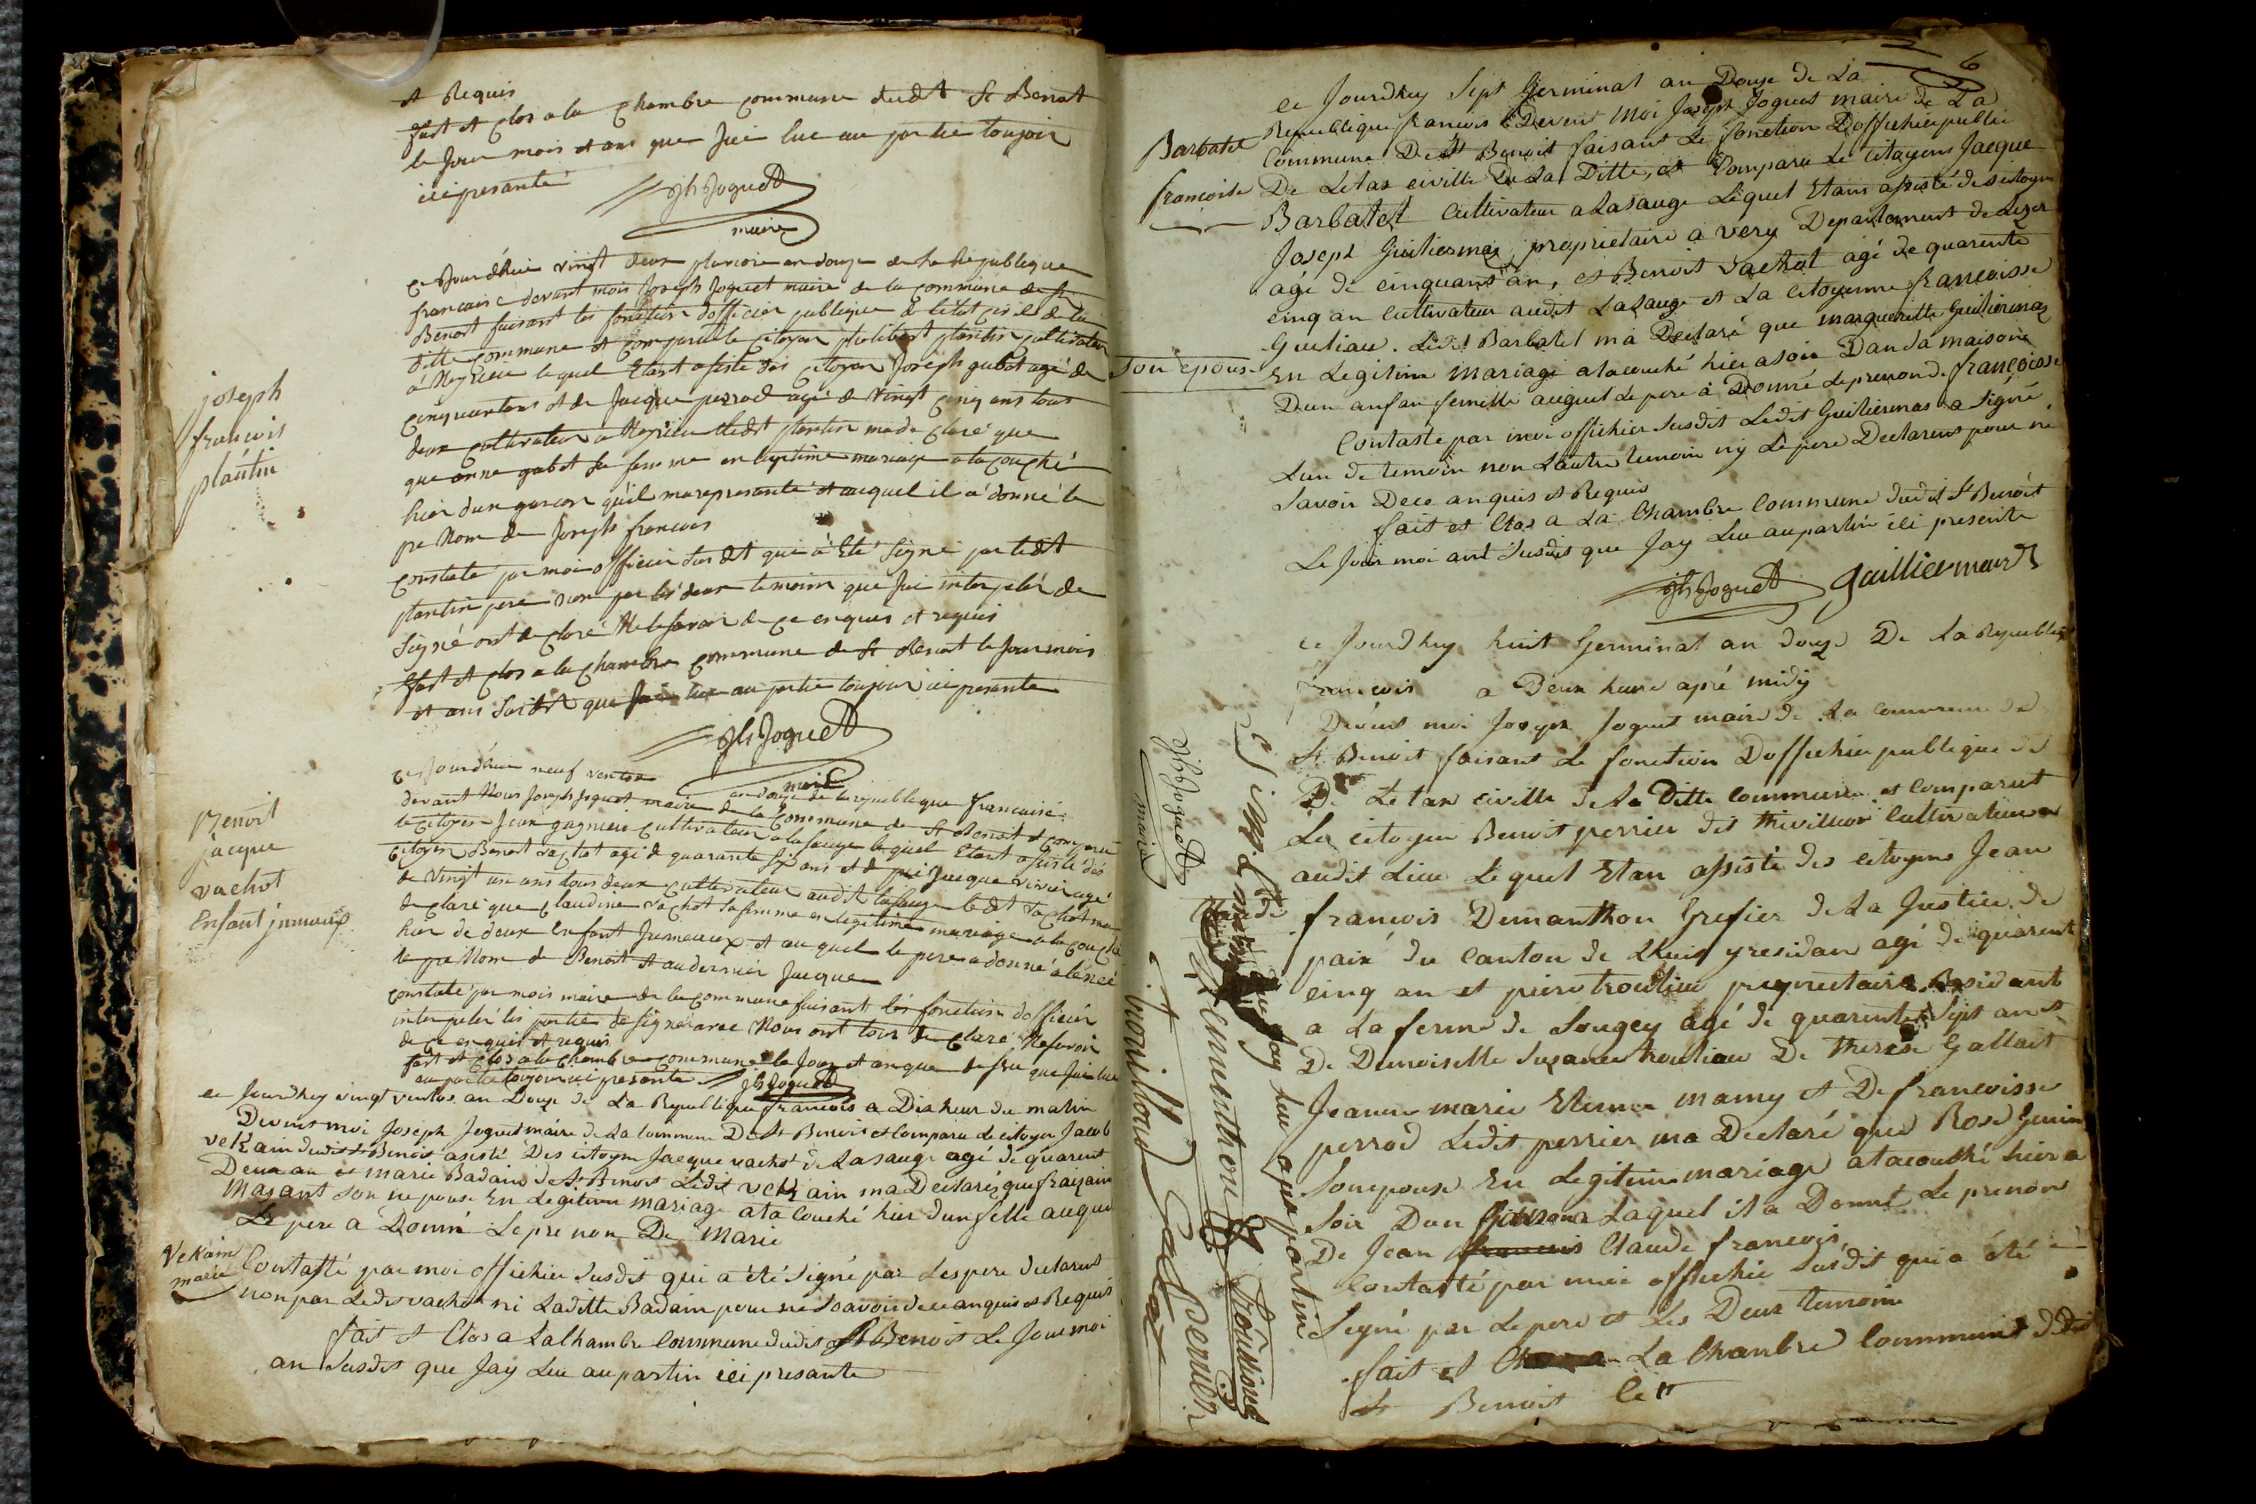 et Requis
fait et clos a la chambre commune dudt St Benoit
le Jour mois et ans que Jai lue au partie toujoir
ici presante
Jh Joguet
maire
joseph
francois
plantin
ce Jourdhuis vingt deux pluvoise an douze de la Republique
francaise devant mois Joseph Joguet maire de la commune de St
Benoit faisant les fonction dofficier publique de letat civil de la
ditte commune et comparu le citoyen plantin cultivateur
a lequel Etant assisté des citoyen Joseph gubot agé de
cinquantans et de Jacque perrod agé de vingt cinq ans tous
deux cultivateur a ledt plantin ma de claré que
que anne gubot sa femme en legitime mariage a la couché
hier dun garcon quil ma represanté et auquel il a donné le
pre Nom de Joseph francois
constaté par moi officier sus dt qui a Eté Signé par ledt
plantin pere non par les deux temoins que Jai interpelér de
Signé ont de claré Ne le savoir de ce enquis et requis
fait et clos a la chambre commune de St Benoit le Jour mois
et ans Susdt que Jai lue au partie toujour ici presante
Jh Joguet
maire
Benoit
jacque
vachot
Enfant jumaux
ce Jourdhui neuf ventos an douze de la republique francaise
devant Nous Joseph Joguet maire de la commune de St Benoit et comparu
le citoyen Jean gagnieu cultivateur a la sauge le quel Etant assisté des
citoyen Benoit vachot agé de quarante six ans et de Jacque vivier agé
de vingt un ans tous deux cultivateur audit lasauge ledt vachot ma
de claré que claudine vachot sa femme en legitime mariage a la couché
hier de deux Enfant Jumeaux et au quel le pere a donné a lainé
le pre Nom de Benoit et au dernier Jacque
constaté par mois maire de la commune faisant les fonction dofficier
interpeler les parties de signé avec Nous ont tois de claré Ne savoir
de ce enquis et requis
fait et clos a la chambre commune le Jour et an que de sus que Jai lue
au partie toujour ici presante Jh Joguet
ce Jourdhuy vingt ventos an Douze de La Republique francois a Dix heur du matin
Devent moi Joseph Joguet maire de La commune De St Benoit et Comparu Le citoyen Jacob
vekain dudit St Benoit asisté Des citoyen Jacque vachot de Lasauge agé de quarent
Deux an et marie Badain de St Benoit Ledit vekain ma Declaré que
son ne pouse En Legitime mariage ata couché hier dun felle auquel
Le pere a Donné Le pre nom De Marie
Vekain
marie
Contasté par moi offichier susdit qui a été signé par Lespere declarent
non par Ledit vachot ni Laditte Badain pour ne Scavoir de ce anquis et Requis
fait et Clos a Lachambre Commune dudit St Benoit Le Jour moi
an susdit que Jay Lue aupartin ici presante
6
Barbatet
francoise
ce Jourdhuy Sept Germinal an Douze de La
Republique francois Devent Moi Joseph Joguet maire de La
Commune De St Benoit faisant Le fonction Doffichier public
De Letas civille De La Ditte, et Comparu Le citoyens Jacque
Barbatet Cultivateur a Lasauge Lequel Etans assisté des citoyen
Joseph Guiliermas proprietaire a very Departement de Lizer
agé de cinquant an, et Benoit Vachot agé de quarente
cinq an Cultivateur audit Lasauge et La citoyenne francoisse
Guiliau. Ledit Barbatet ma Declaré que margueritte Guiliermas
son epouse
En Legitime Mariage ata couché hier a soir Dan sa maisoin
Dun anfan femelle auquel Le pere a Donné Le prenon de françoisse
Contasté par moi offichier susdit Ledit Guiliermas a Signé
Lun de temoin non Lautre temoin ny Le pere Declarent pour ne
Savoir De ce anquis et Requis
fait et Clos a La Chambre Commune dudit St Benoit
Le Jour moi ant susdit que Jay Lue aupartin ici presente
Jh Joguet Guilliermard
ce Jourdhuy huit Germinal an douze De La Republiq
francois a Deux heure apré midy
Devent moi Joseph Joguet maire de La commune de
St Benoit faisant Le fonction Doffichier publique de
De Letax civille de La Ditte Commune et Comparut
Le citoyen Benoit perrier dit thivillion Cultivateur
audit Lieu Lequel Etan assisté des citoyens Jean
francois Demanthon Grefier de La Justice de
paix du Canton de Lhuis y residan agé de quarent
cinq an et piere trouliou propriettaire Residant
a La ferme de Sougey agé de quarente Sept an et
De Demoiselle Suzanne trouliou De therese Gallait
Jeanne marie Etienne mamy et De francoisse
perrod Ledit perrier ma Declaré que Rose Guinin
Sonepouse En Legitime mariage atacouché hier a
Soir Dun Garson a Laquel il a Donné Le prenon
De Jean francois Claude francois
Contasté par moi offichie Susdit qui a été
Signé par Le pere et Les Deux temoin
fait et Clos a La Chambre Commune dudit
St Benoit Le
Jh Joguet
maire
Demanthon
que Jay Lue aux partin
t thouilloud Gallait
perrier